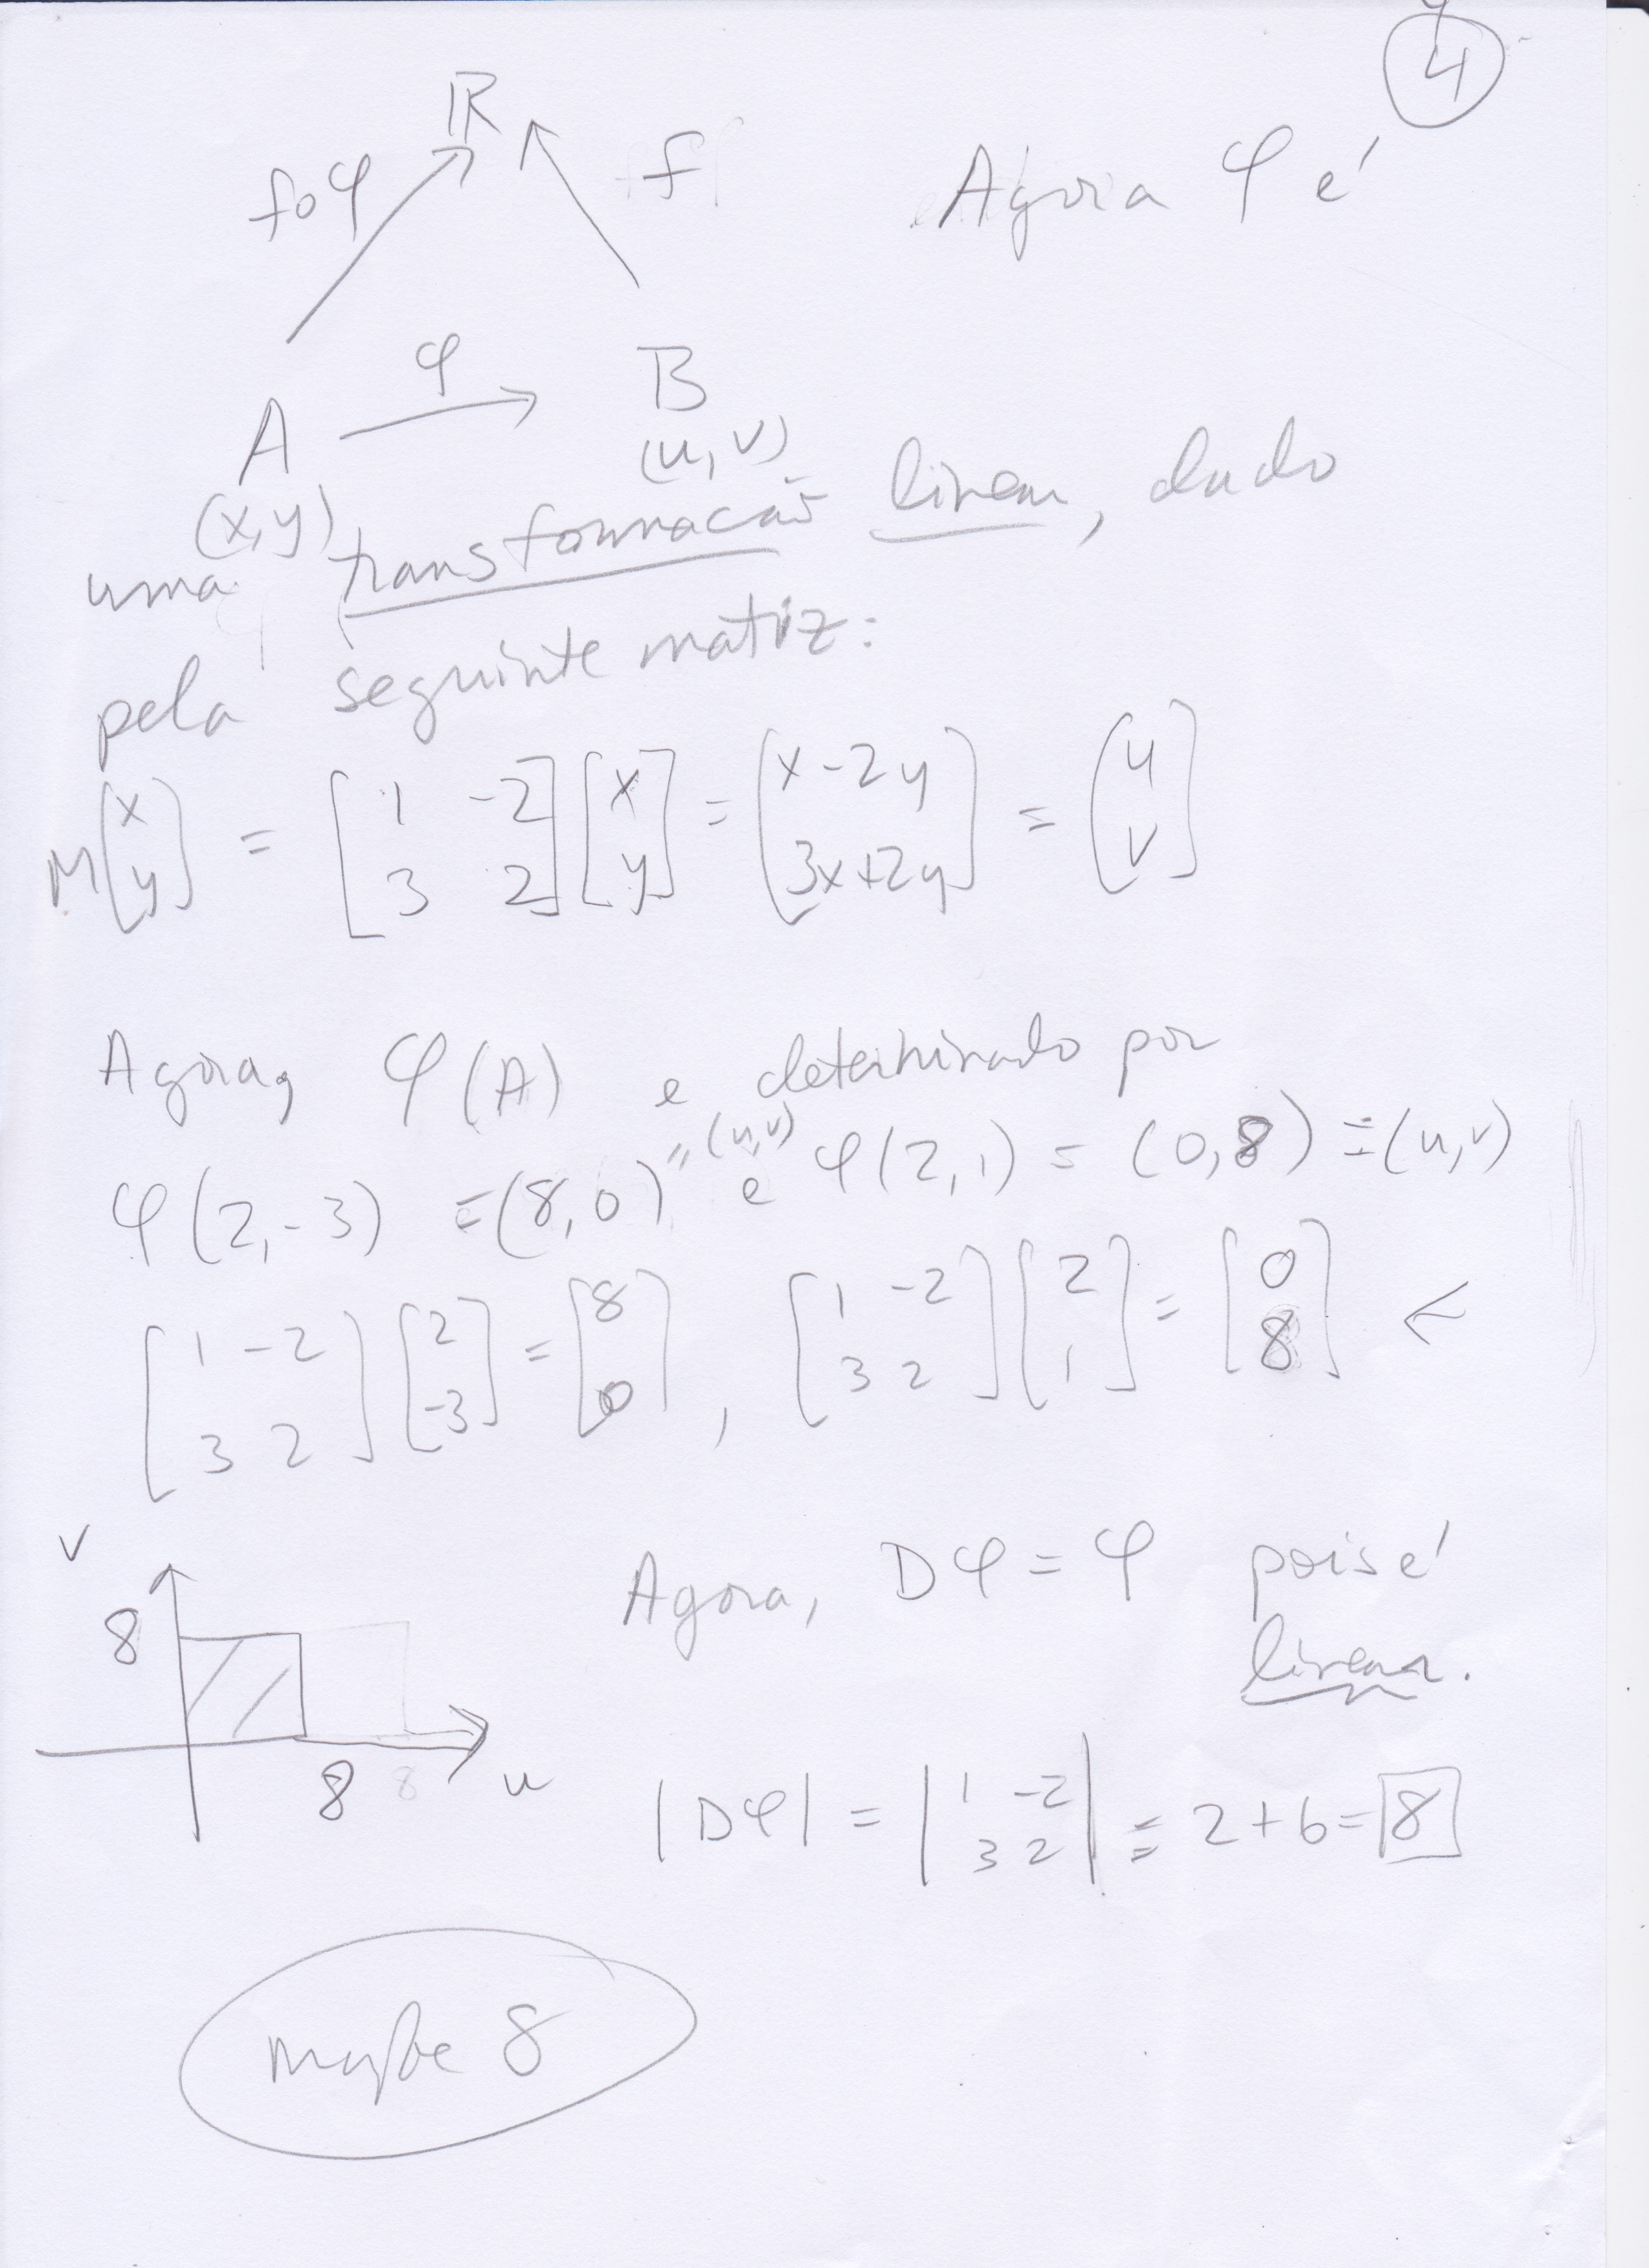 4
ℝ
f∘φ
f
Agora φ é
φ
A
B
(x,y)
(u,v)
uma transformação linear, dado
pela seguinte matriz:
M(x y) = [1 -2; 3 2][x y] = (x-2y; 3x+2y) = (u v)
Agora, φ(A) e determinado por
φ(2,-3) = (8,0) = (u,v) e φ(2,1) = (0,8) = (u,v)
[1 -2; 3 2][2; -3] = [8; 0], [1 -2; 3 2][2; 1] = [0; 8] <
v
8
8
8
u
Agora, Dφ = φ pois é
linear.
|Dφ| = |1 -2; 3 2| = 2+6=8
maybe 8